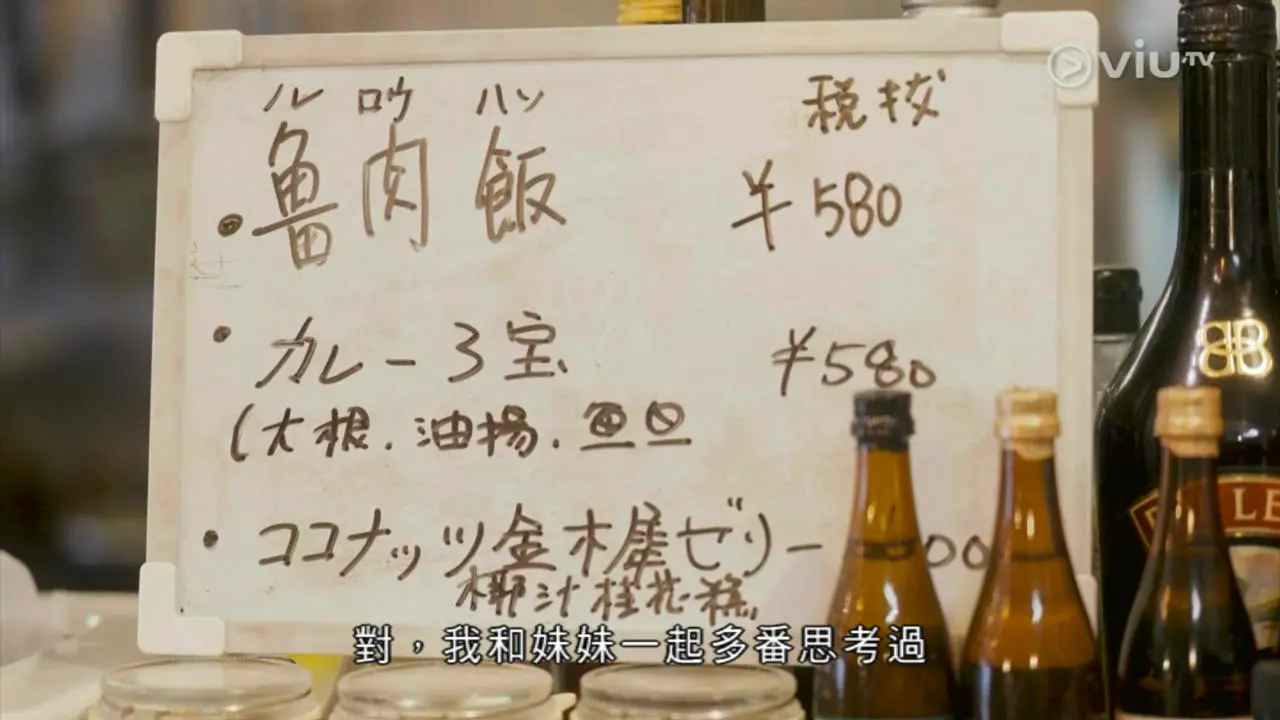 viuTV
ルロウハン
税抜
・魯肉飯 ¥580
・カレー3宝 ¥580
(大根.油揚.
・ココナッツ金木犀ゼリー 00
椰汁桂花糕
LE
對，我和妹妹一起多番思考過